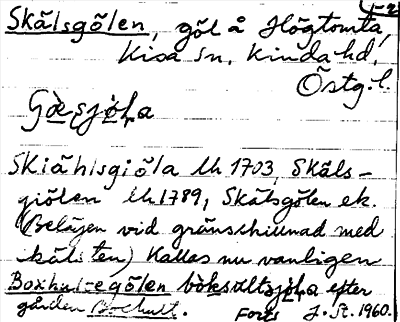 1-2
Skälsgölen, göl å Högtomta,
Kisa sn, Kinda hd,
Östg.l.
Gässjöla
Skiählsgiöla lh 1703, Skäls-
giölen lh 1789, Skälsgölen ek.
(Belägen vid gränsskillnad med
Kalls nu vanligen
Boxhul-egölen böksultsjöla efter
gården Bochult. Forts J. St. 1960.